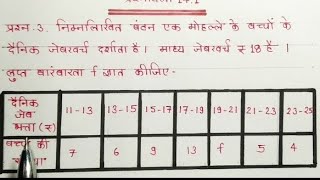 प्रश्न.3. निम्नलिखित बंतन एक मोहल्ले के बच्चों के
दैनिक जेबखर्च दर्शाता है। माध्य जेबखर्च ₹ 18 है ।
लुप्त बारंबारता f ज्ञात कीजिए-
दैनिक जेब भत्ता (₹) 11-13 13-15 15-17 17-19 19-21 21-23 23-25
बच्चों की 7 6 9 13 f 5 4